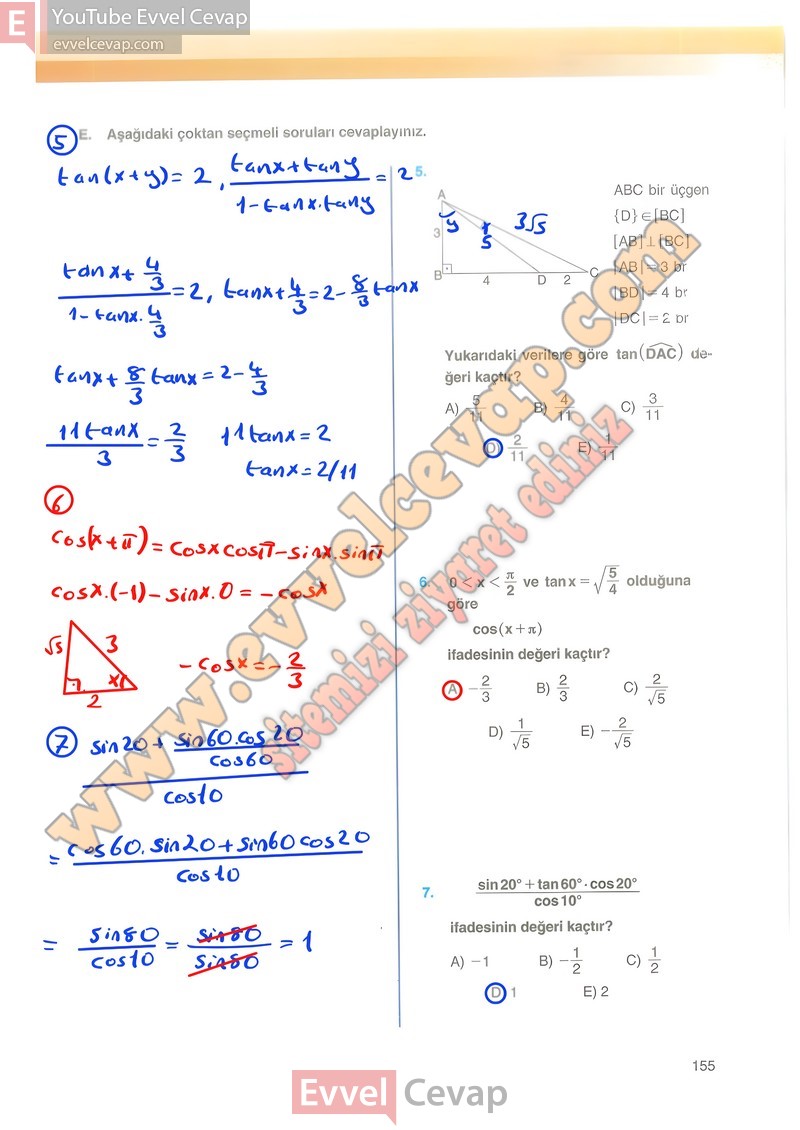 E
YouTube Evvel Cevap
evvelcevap.com
5
E. Aşağıdaki çoktan seçmeli soruları cevaplayınız.
tan(x+y) = 2, (tanx+tany)/(1-tanx.tany) = 2
(tanx+4/3)/(1-tanx.4/3) = 2, tanx+4/3=2-8/3 tanx
tanx+8/3 tanx=2-4/3
11tanx/3=2/3 11tanx=2
tanx=2/11
6
cos(x+π)=cosxcosπ-sinx.sinπ
cosx.(-1)-sinx.0=-cosx
√5 3
x
2
-cosx=-2/3
7
(sin20+(sin60.cos20)/cos60)/cos10
=(cos60.sin20+sin60cos20)/cos10
= sin80/cos10 = sin80/sin80 = 1
5.
A
y x 3√5
3 5
B 4 D 2 C
ABC bir üçgen
{D}∈[BC]
[AB]⊥[BC]
|AB|=3 br
|BD|=4 br
|DC|=2 br
Yukarıdaki verilere göre tan(DAC) de-
ğeri kaçtır?
A) 5/11 B) 4/11 C) 3/11
D) 2/11 E) 1/11
6. 0<x<π/2 ve tanx=√(5/4) olduğuna
göre
cos(x+π)
ifadesinin değeri kaçtır?
A) -2/3 B) 2/3 C) 2/√5
D) 1/√5 E) -2/√5
7. (sin20°+tan60°·cos20°)/cos10°
ifadesinin değeri kaçtır?
A) -1 B) -1/2 C) 1/2
D) 1 E) 2
www.evvelcevap.com
sitemizi ziyaret ediniz
155
Evvel Cevap